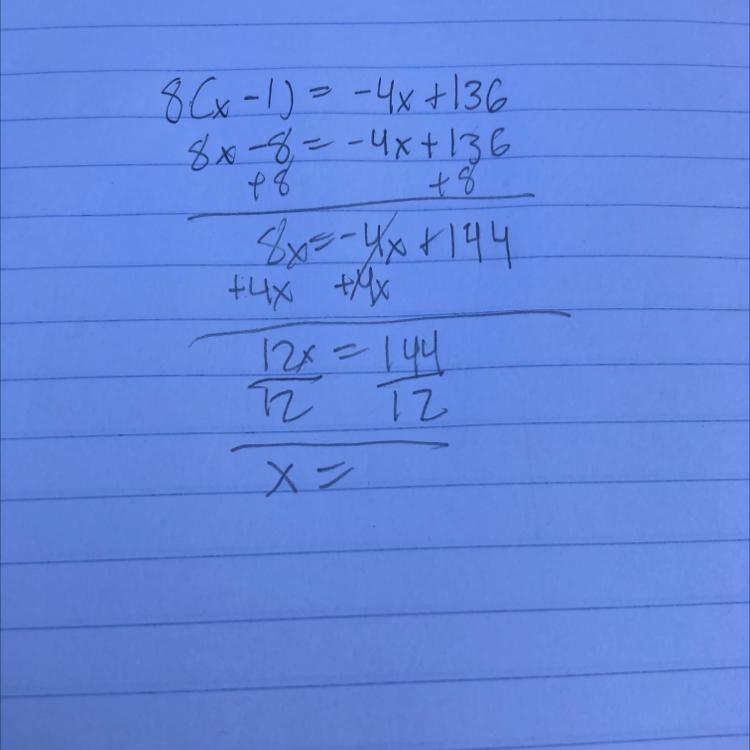 8(x-1) = -4x+136
8x-8 = -4x+136
+8 +8
8x=-4x+144
+4x +4x
12x = 144
12 12
x =